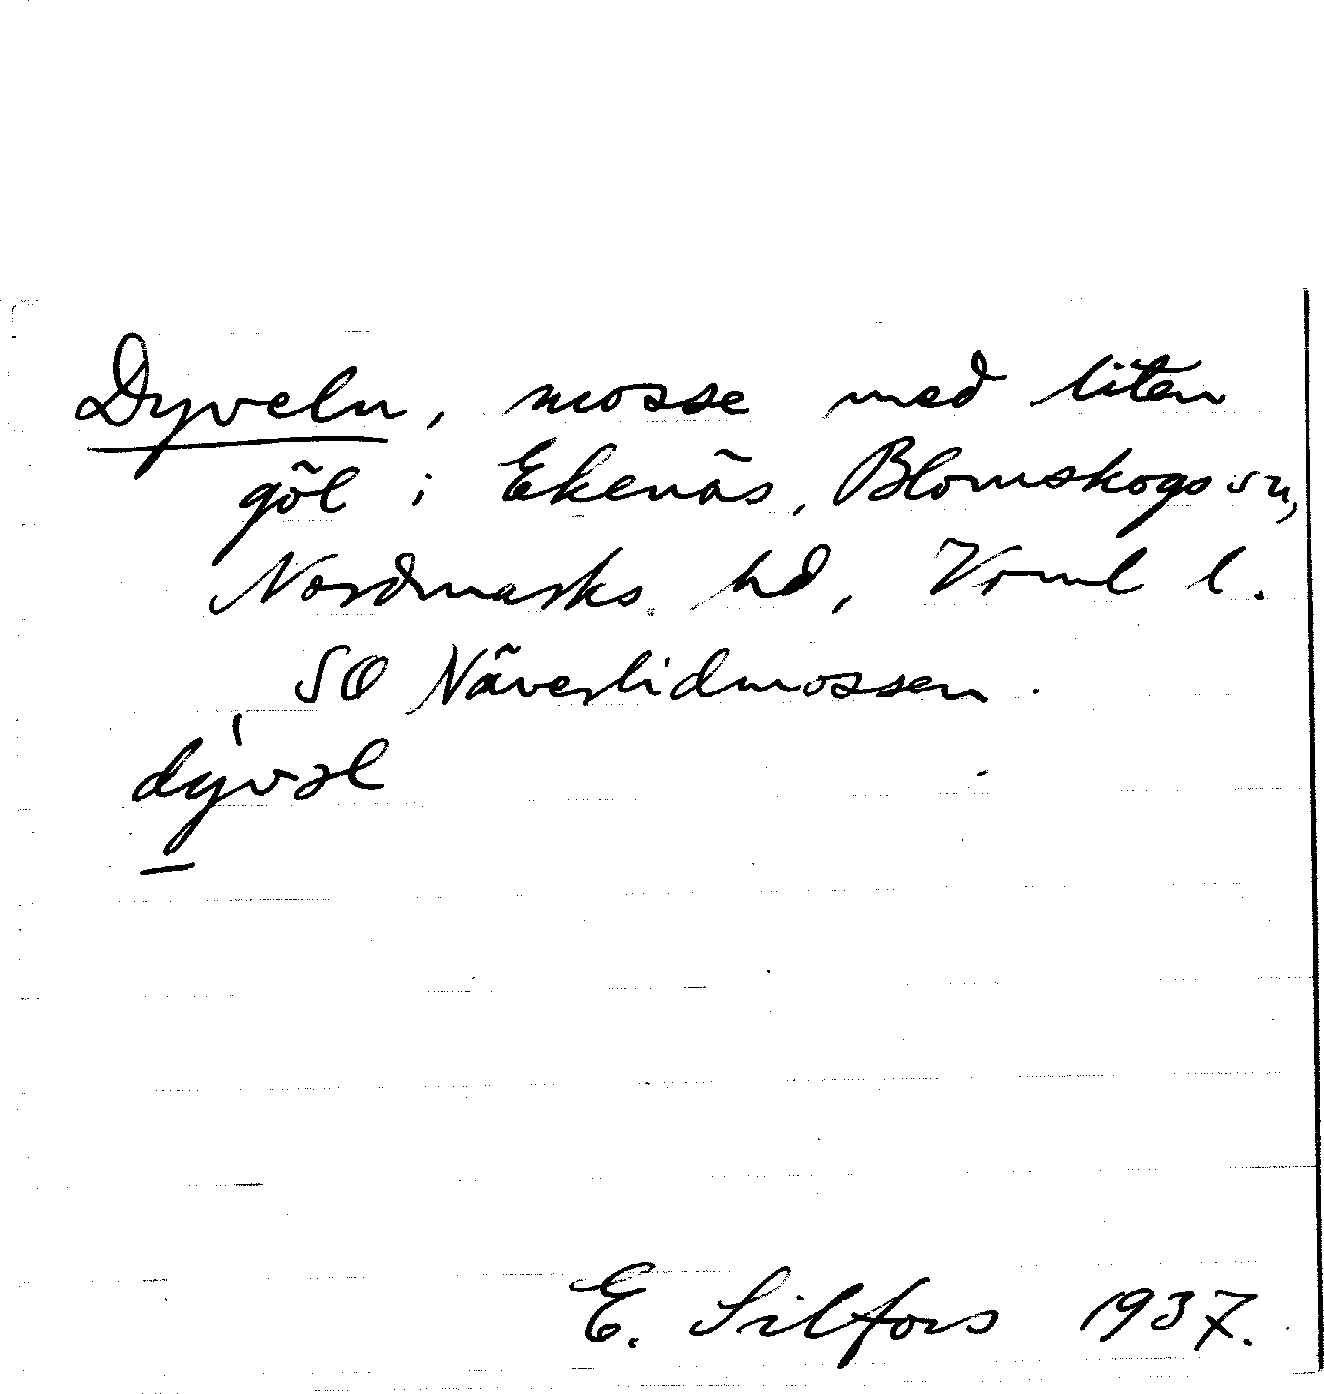 Dyveln, mosse med liten
göl i Ekenäs, Blomskogs sn,
Nordmarks hd, Vrml l.
SO Näverlidmossen.
dyvəl
E. Silfors 1937.